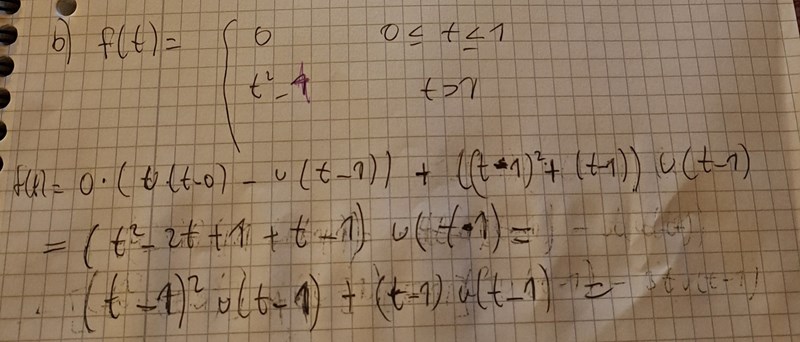 b) f(t) = { 0   0 ≤ t ≤ 1
t² - 1   t > 1
f(t) = 0·(u(t-0) - u(t-1)) + ((t-1)² + (t-1)) u(t-1)
= (t² - 2t + 1 + t - 1) u(t-1) =
(t-1)² u(t-1) + (t-1) u(t-1) =